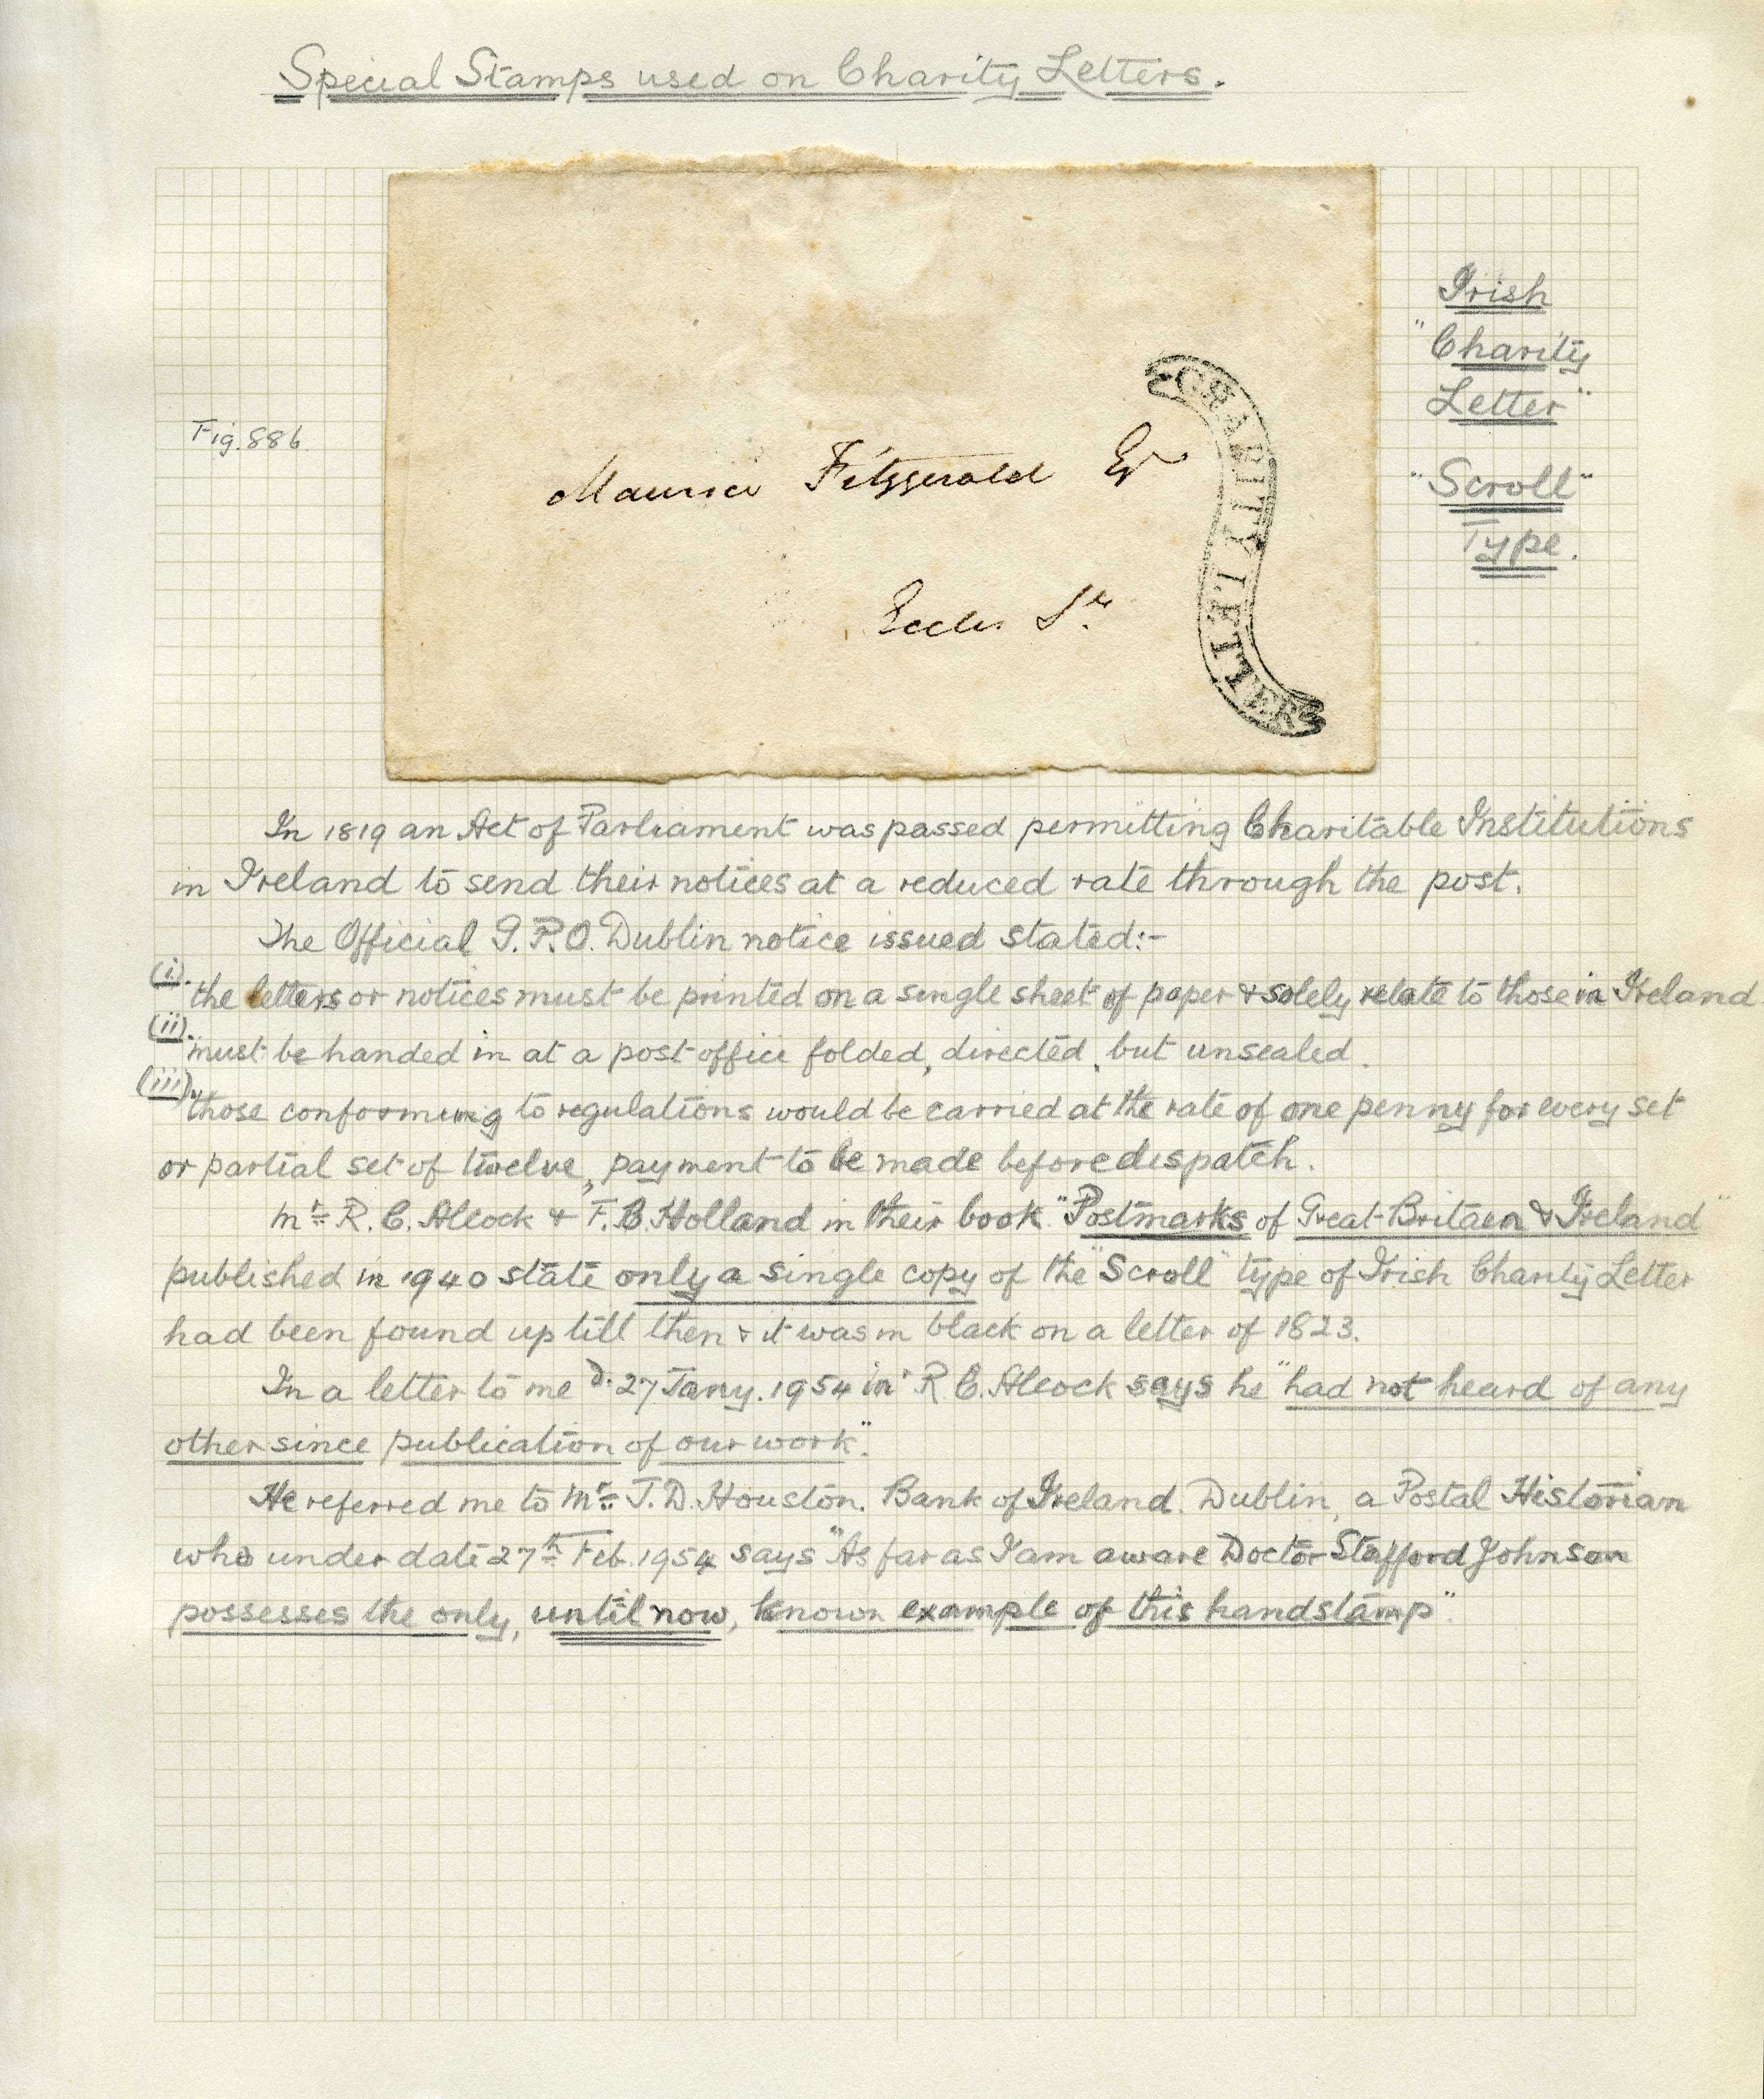 Special Stamps used on Charity Letters.
Fig. 886
Maurice Fitzgerald Esqr
Eccles St.
CHARITY LETTERS
Irish
"Charity
Letter"
"Scroll"
Type.
In 1819 an Act of Parliament was passed permitting Charitable Institutions
in Ireland to send their notices at a reduced rate through the post.
The Official G.P.O. Dublin notice issued stated:-
(i). the letters or notices must be printed on a single sheet of paper & solely relate to those in Ireland
(ii). must be handed in at a post office folded, directed, but unsealed.
(iii). those conforming to regulations would be carried at the rate of one penny for every set
or partial set of twelve, payment to be made before despatch.
Mr. R. C. Alcock & F. C. Holland in their book "Postmarks of Great Britain & Ireland"
published in 1940 state only a single copy of the "Scroll" type of Irish Charity Letter
had been found up till then & it was in black on a letter of 1823.
In a letter to me d. 27 Jany. 1954 Mr R. C. Alcock says he "had not heard of any
other since publication of our work".
He referred me to Mr. J. D. Houston. Bank of Ireland. Dublin, a Postal Historian
who under date 27th Feb. 1954 says "As far as I am aware Doctor Stafford Johnson
possesses the only, until now, known example of this handstamp".